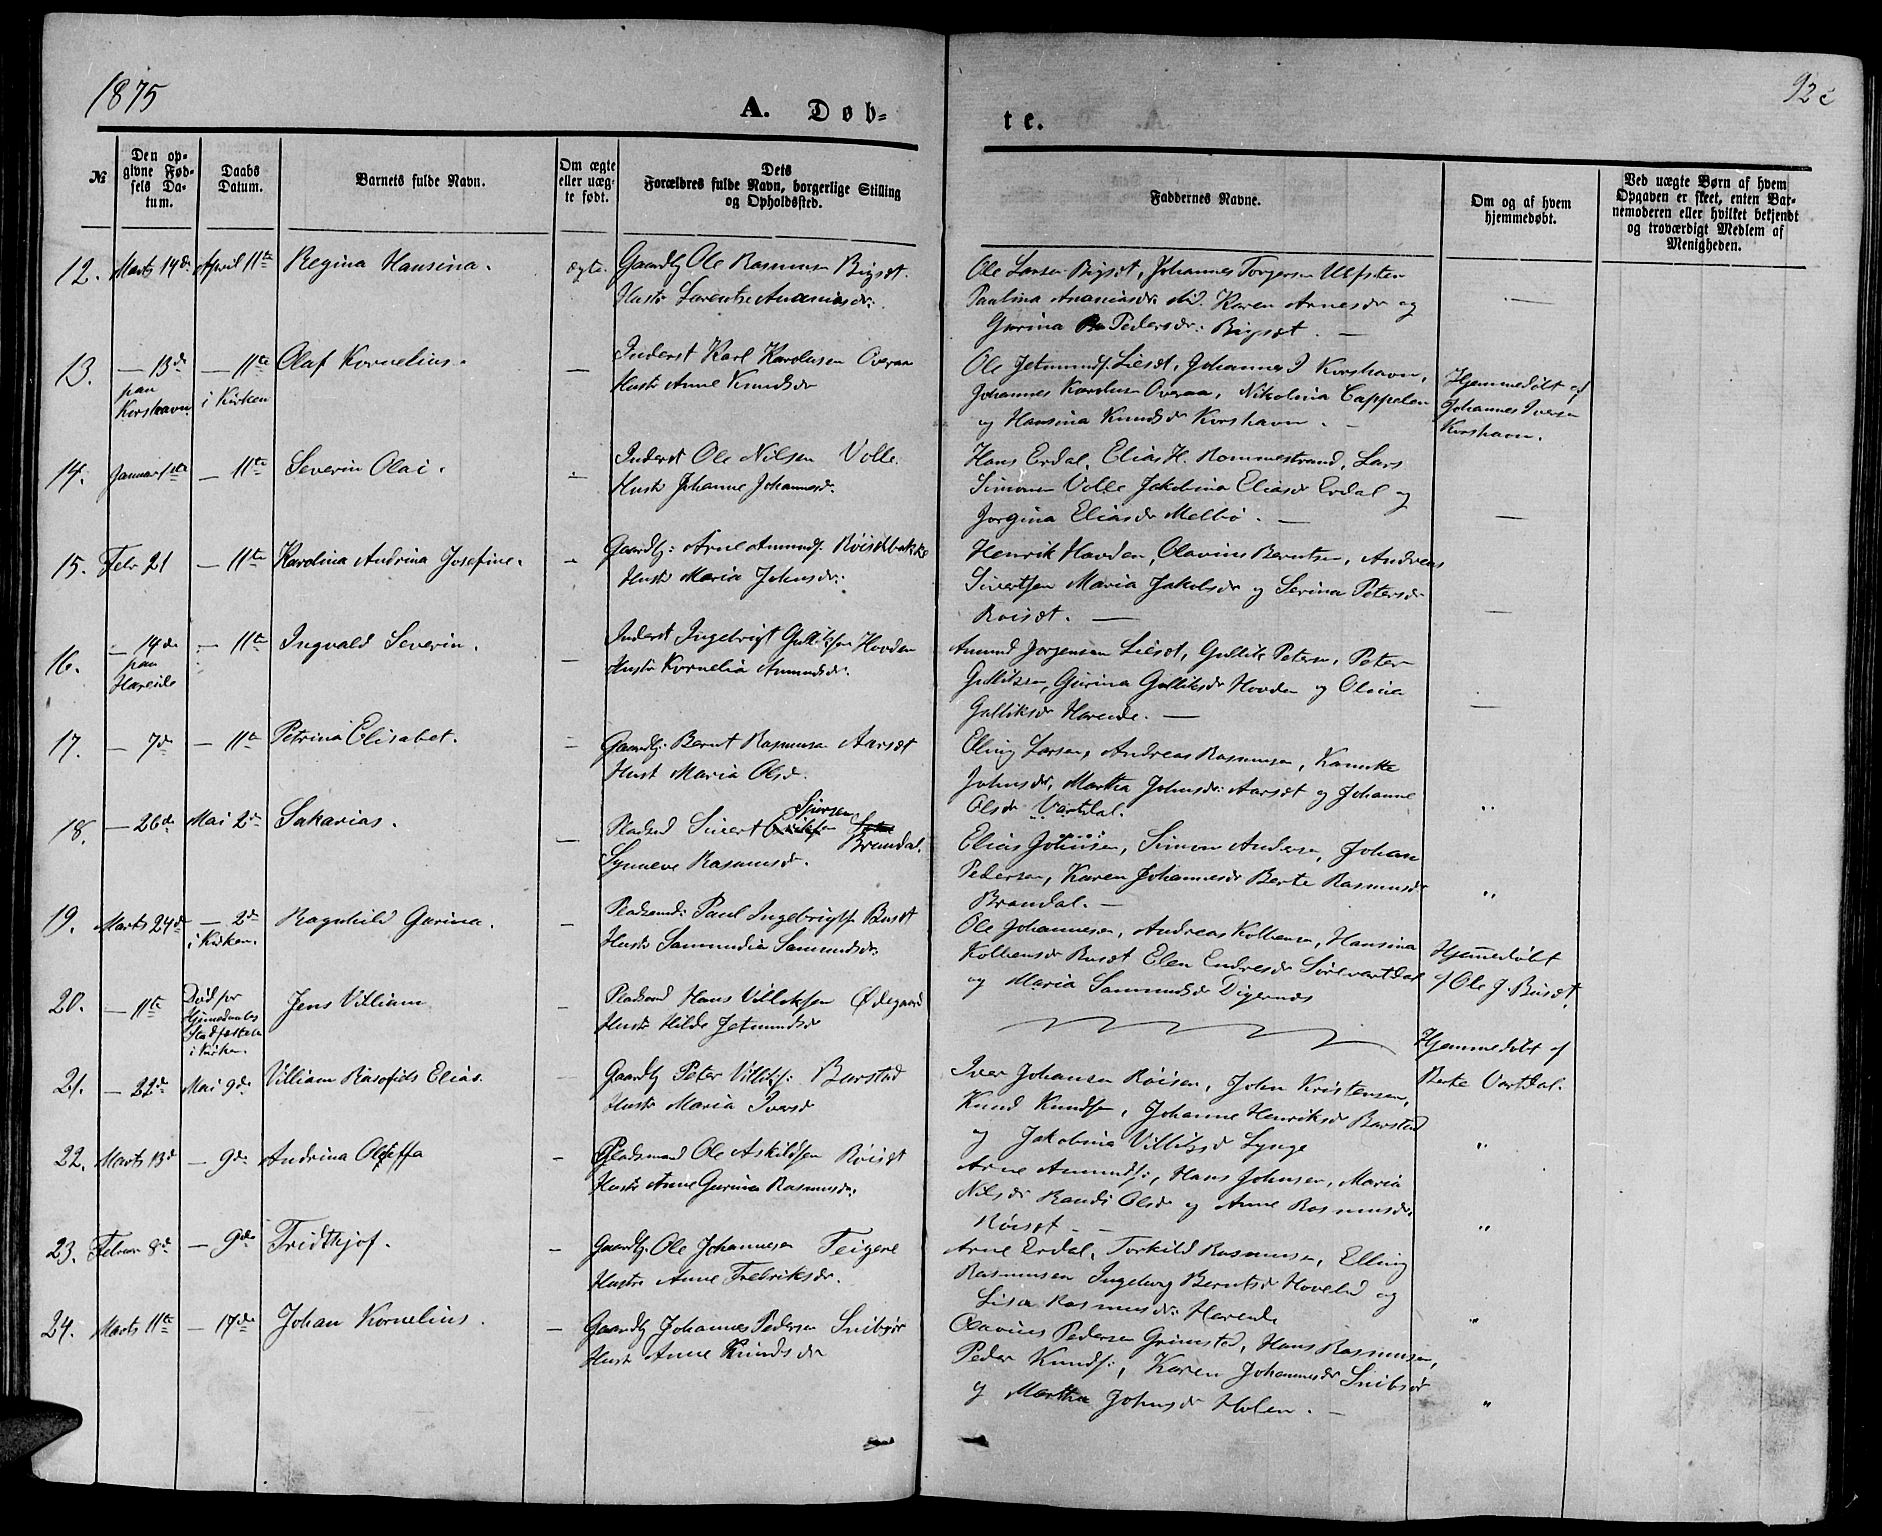 1875
92c
A. Døb-
te.
№
Den op-
givne Fød-
sels Da-
tum.
Daabs
Datum.
Barnets fulde Navn.
Om ægte
eller uæg-
te født.
Dets
Forældres fulde Navn, borgerlige Stilling
og Opholdssted.
Faddernes Navne.
Om og af hvem
hjemmedøbt.
Ved uægte Børn af hvem
Opgaven er skeet, enten Bar-
nemoderen eller hvilket bekjendt
og troværdigt Medlem af
Menigheden.
12. Marts 14de April 11te Regina Hansina. ægte. Gaardbr Ole Rasmusen Bigset.
Hustr Lorentze Ananiasdr.
Ole Larsen Bigset, Johannes Torgersen Ulfsten
Paulina Ananiasdr. Karen Arnesdr og
Gurina Pedersdr: Bigset. —
13. — 13de — 11te Olaf Kornelius. — Inderst Karl Karolusen Overaa
paa Korshavn i Kirken Hustr Anne Knudsdr
Ole Jetmundsen Liset, Johannes I Korshavn,
Johannes Karolusen Overaa, Nikolina Cappelen
og Hansina Knudsdr Korshavn. —
Hjemmedøbt af
Johannes Iversen
Korshavn.
14. Januar 1ste — 11te Severin Olai. — Inderst Ole Nilsen Volle.
Hustr Johanne Johannesdr.
Hans Erdal, Elias H. Rommestrand, Lars
Simonsen Volle Jakobina Eliasdr Erdal og
Jorgina Eliasdr Melbø. —
15. Febr 21 — 11te Karolina Andrina Josefine. — Gaardbr: Arne Amunds. Røisetbakke
Hustr Maria Johnsdr:
Henrik Hovden, Olavius Berntsen, Andreas
Sivertsen Maria Jakobsdr og Serina Petersdr
Røiset. —
16. — 14de — 11te Ingvald Severin. — Inderst Ingebrigt Gulliksen Hovden
paa Hareide Hustr Kornelia Amundsdr.
Amund Jorgensen Liset, Gullik Petersen, Peter
Gulliksen, Gurina Gulliksdr Hovden og Olivia
Gulliksdr Hareide. —
17. — 7de — 11te Petrina Elisabet. — Gaardbr. Bernt Rasmusen Aarset
Hust Maria Olsdr.
Elling Larsen, Andreas Rasmusen, Kanutte
Johnsdr, Martha Johnsdr: Aarset og Johanne
Olsdr Vartdal.
18. — 26de Mai 2de Sakarias. — Pladsmd Sivert Sjursen Brandal.
Synneve Rasmusdr.
Elias Johnsen, Simon Andersen, Johan
Pedersen, Karen Johannesdr Berte Rasmusdr
Brandal. —
19. Marts 24de — 2de Ragnhild Gurina. — Pladsmd: Paul Ingebrigts. Buset
i Kirken. Hustr Samundia Samundsdr.
Ole Johannesen, Andreas Kolbensen, Hansina
Kolbensdr Buset Elen Endresdr Sørevartdal
og Maria Samundsdr Digernes
Hjemmedøbt
af Ole J. Buset.
20. — 11te Død før
Hjemedaabens
Stadfæstelse
i Kirken. Jens Villiam — Pladsmd Hans Villiksen Ødegaard
Hustr Hilde Jetmundsdr
Hjemmedøbt af
Berte Vartdal.
21. — 22de Mai 9de Villiam Rasofids Elias. Gaardbr Peter Villiks: Barstad
Hustr Maria Iversdr
Iver Johansen Røisen, John Kristensen,
Knud Knudsen, Johanne Henriksdr Barstad
og Jakobina Villiksdr Lynge
22. Marts 13de — 9de Andrina Oleffa — Pladsmand Ole Askildsen Røiset
Hustr Anne Gurina Rasmusdr.
Arne Amunds:, Hans Johnsen, Maria
Nilsdr Randi Olsdr og Anne Rasmusdr.
Røiset. —
23. Februar 8de — 9de Fridthjof. — Gaardbr. Ole Johannesen Teigene
Hustr Anne Fredriksdr.
Arne Erdal, Torkild Rasmusen, Elling
Rasmusen Ingeborg Berntsdr Hovelid og
Lisa Rasmusdr: Hareide
24. Marts 11te — 17de Johan Kornelius. — Gaardbr Johannes Pedersen Snibsør
Hust Anne Knudsdr
Olavius Pedersen Grimstad, Hans Rasmusen,
Peder Knuds:, Karen Johannesdr Snibsør
og Martha Johnsdr Holen. —